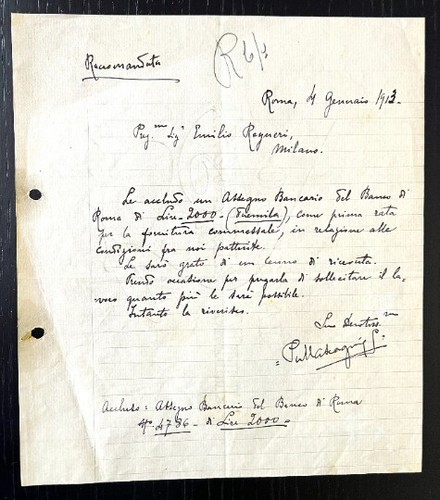 Raccomandata
R
Roma, 4 Gennaio 1913.
Preg.mo Sigr Emilio
Milano.
Le accludo un Assegno Bancario del Banco di
Roma di Lire 2000 = (duemila), come prima rata
per la fornitura commessale, in relazione alle
condizioni fra noi pattuite.
Le sarò grato di un cenno di ricevuta.
Prendo occasione per pregarla di sollecitare il la-
voro quanto più le sarà possibile.
Intanto la riverisco.
Suo Devotiss.mo
Accluso: Assegno Bancario del Banco di Roma
No 4786 - di Lire 2000 =